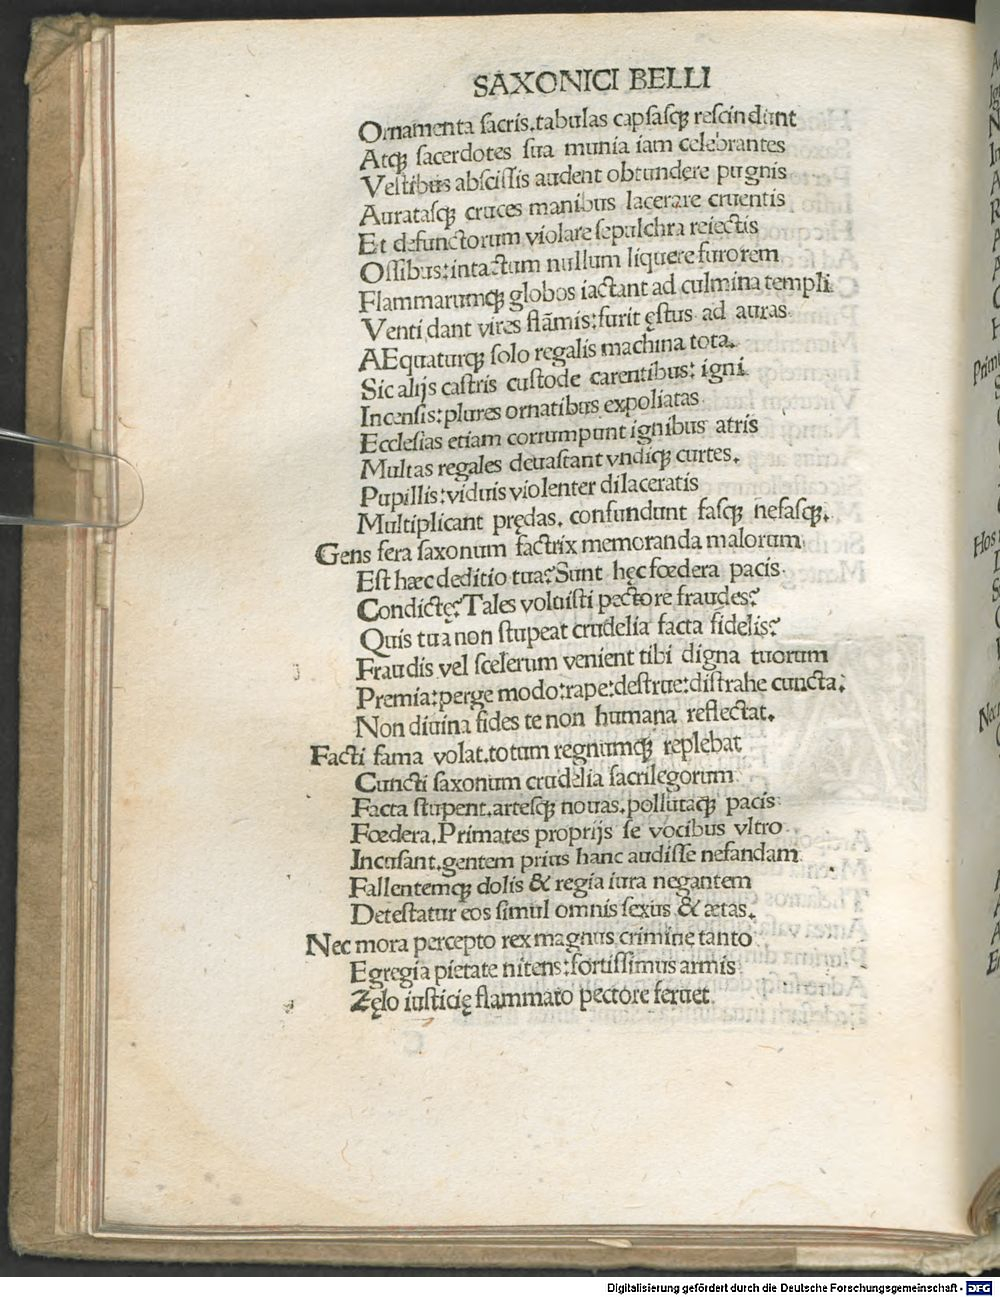 SAXONICI BELLI
Ornamenta sacris.tabulas capsasqꝫ rescindunt
Atqꝫ sacerdotes sua munia iam celebrantes
Vestibus abscissis audent obtundere pugnis
Auratasqꝫ cruces manibus lacerare cruentis
Et defunctorum violare sepulchra reiectis
Ossibus:intactum nullum liquere furorem
Flammarumqꝫ globos iactant ad culmina templi.
Venti dant vires flāmis:furit ęstus ad auras
AEquaturqꝫ solo regalis machina tota.
Sic alijs castris custode carentibus: igni
Incensis:plures ornatibus expoliatas
Ecclesias etiam corrumpunt ignibus atris
Multas regales deuastant vndiqꝫ curtes.
Pupillis:viduis violenter dilaceratis
Multiplicant prędas. confundunt fasqꝫ nefasqꝫ.
Gens fera saxonum factrix memoranda malorum
Est hæc deditio tua? Sunt hęc fœdera pacis
Condictę? Tales voluisti pectore fraudes?
Quis tua non stupeat crudelia facta fidelis?
Fraudis vel scelerum venient tibi digna tuorum
Premia:perge modo:rape:destrue:distrahe cuncta:
Non diuina fides te non humana reflectat.
Facti fama volat.totum regnumqꝫ replebat
Cuncti saxonum crudelia sacrilegorum
Facta stupent.artesqꝫ nouas.pollutaqꝫ pacis
Fœdera.Primates proprijs se vocibus vltro
Incusant.gentem prius hanc audisse nefandam
Fallentemqꝫ dolis & regia iura negantem
Detestatur eos simul omnis sexus & ætas.
Nec mora percepto rex magnus crimine tanto
Egregia pietate nitens:fortissimus armis
Zęlo iusticię flammato pectore feruet.
Digitalisierung gefördert durch die Deutsche Forschungsgemeinschaft - DFG